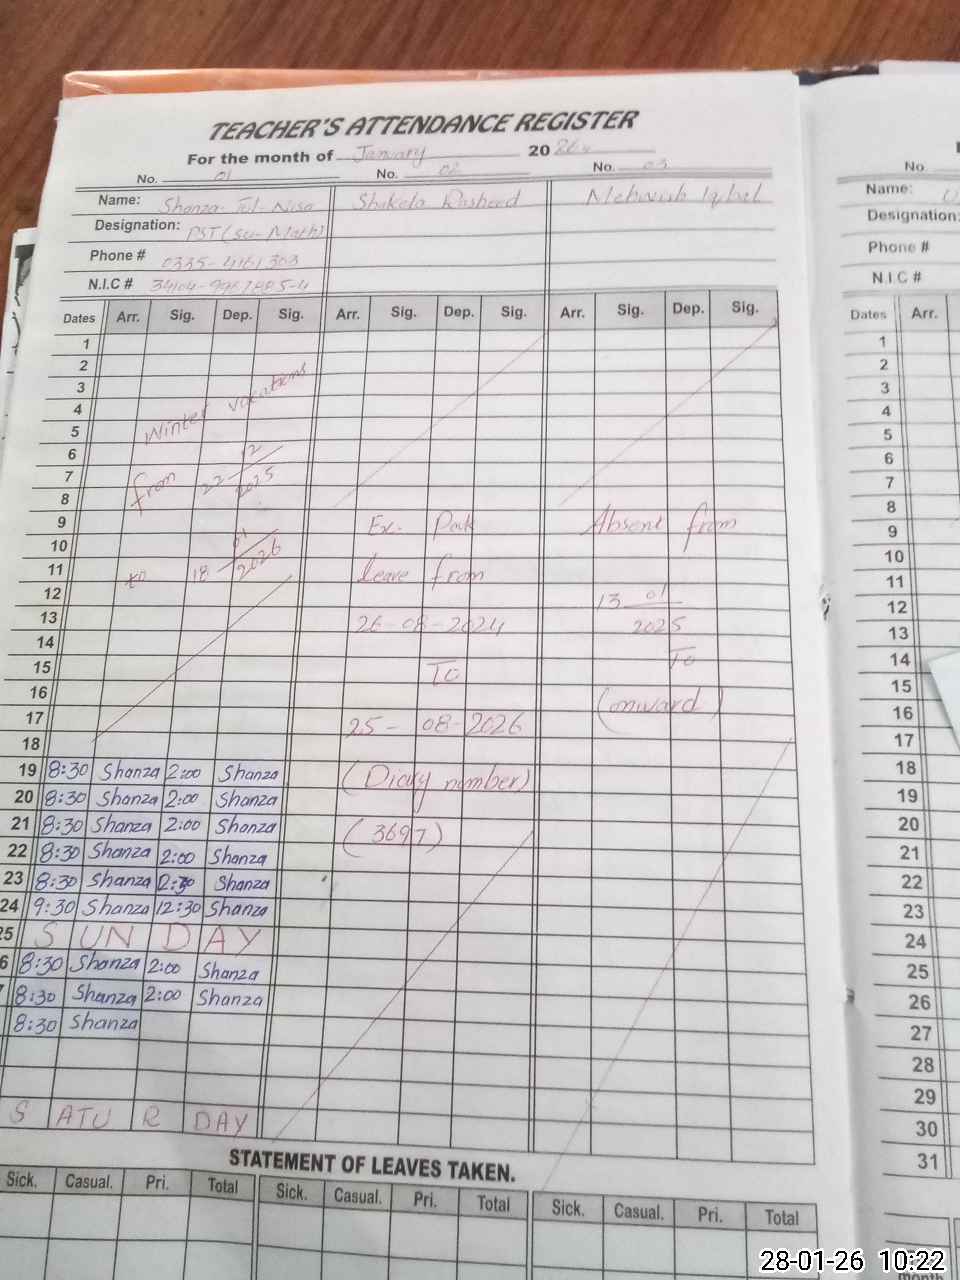 TEACHER'S ATTENDANCE REGISTER
For the month of January 20 26
No. 01 No. 02 No. 03 No.
Name: Shanza-Tul-Nisa Shakela Rasheed Mehwish Iqbal Name:
Designation: PST (Sci-Math) Designation:
Phone # 0335-4161303 Phone #
N.I.C # N.I.C #
Dates Arr. Sig. Dep. Sig. Arr. Sig. Dep. Sig. Arr. Sig. Dep. Sig. Dates Arr.
1 1
2 2
3 3
4 Winter vacations 4
5 5
6 6
7 from 22-12-2025 7
8 8
9 Ex. Pak Absent from 9
10 10
11 to 18-01-2026 leave from 11
12 13-01-2025 12
13 26-08-2024 13
14 To 14
15 To 15
16 (onward) 16
17 25-08-2026 17
18 18
19 8:30 Shanza 2:00 Shanza (Diary number) 19
20 8:30 Shanza 2:00 Shanza 20
21 8:30 Shanza 2:00 Shanza (3697) 21
22 8:30 Shanza 2:00 Shanza 22
23 8:30 Shanza 2:30 Shanza 23
24 9:30 Shanza 12:30 Shanza 24
25 SUNDAY 25
6 8:30 Shanza 2:00 Shanza 26
7 8:30 Shanza 2:00 Shanza 27
8:30 Shanza 28
29
30
SATURDAY 31
STATEMENT OF LEAVES TAKEN.
Sick. Casual. Pri. Total Sick. Casual. Pri. Total Sick. Casual. Pri. Total
month
28-01-26 10:22